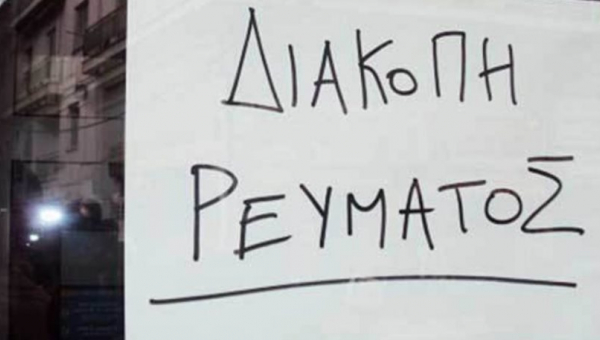 ΔΙΑΚΟΠΗ
ΡΕΥΜΑΤΟΣ